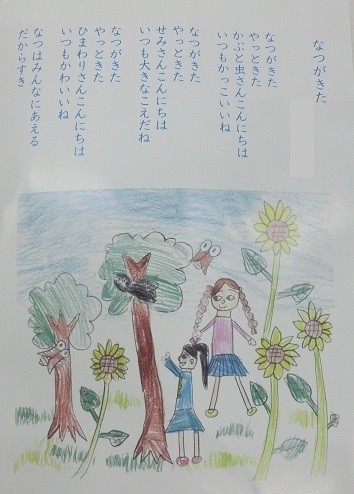 なつがきた
なつがきた
やっときた
かぶと虫さんこんにちは
いつもかっこいいね
なつがきた
やっときた
せみさんこんにちは
いつも大きなこえだね
なつがきた
やっときた
ひまわりさんこんにちは
いつもかわいいね
なつはみんなにあえる
だからすき